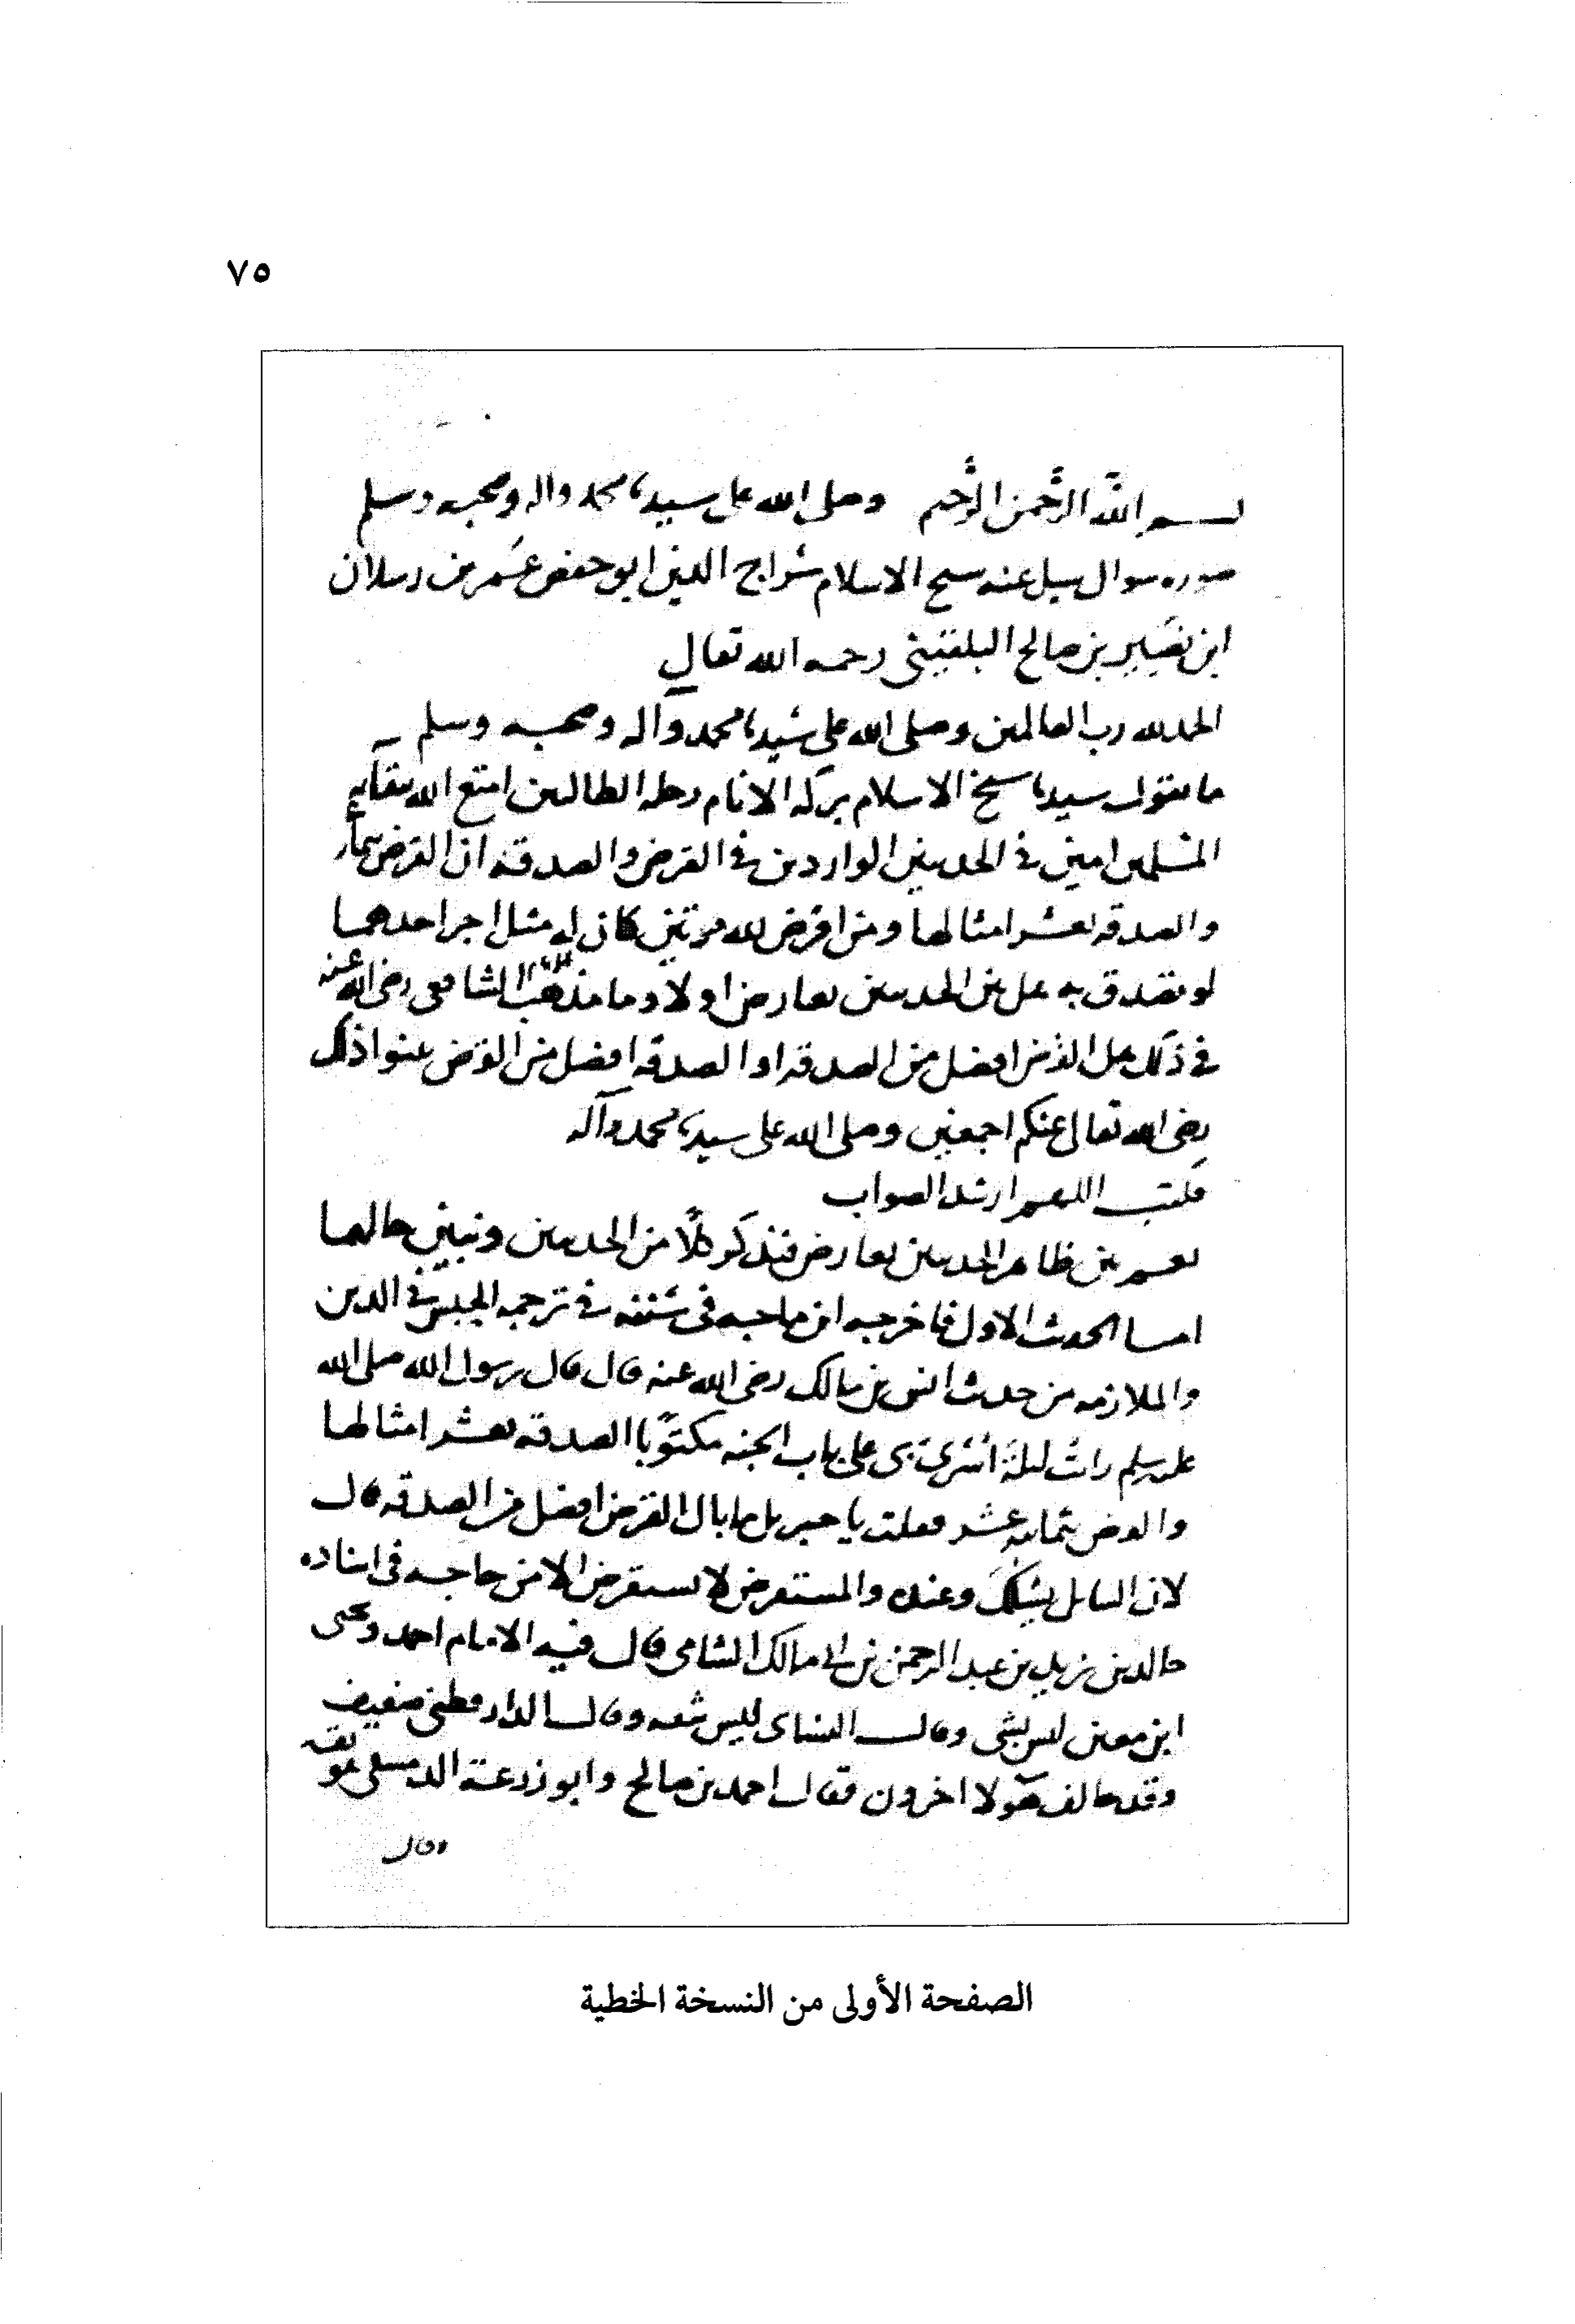 ٧٥
بسم الله الرحمن الرحيم وصلى الله على سيدنا محمد واله وصحبه وسلم
صوره سوال سيل عنه شيخ الاسلام سراج الدين ابو حفص عمر بن رسلان
ابن نصير بن صالح البلقيني رحمه الله تعالى
الحمد لله رب العالمين وصلى الله على سيدنا محمد وآله وصحبه وسلم
ما يقول سيدنا شيخ الاسلام بركة الانام رحلة الطالبين امتع الله ببقايه
المسلمين امين في الحديثين الواردين في القرض والصدقه ان القرض بثمان
والصدقه بعشر امثالها ومن اقرض لله مرتين كان له مثل اجر احدهما
لو تصدق به هل بين الحديثين تعارض اولا وما مذهب الشافعي رضي الله عنه
في ذلك هل القرض افضل من الصدقه او الصدقه افضل من القرض بينوا ذلك
رضي الله تعالى عنكم اجمعين وصلى الله على سيدنا محمد وآله
فكتب اللهم ارشد الصواب
نعم بين ظاهر الحديثين تعارض فنذكر كلًا من الحديثين ونبين حالهما
اما الحديث الاول فاخرجه ابن ماجه في سننه في ترجمه الحبس في الدين
والملازمه من حديث انس بن مالك رضي الله عنه قال قال رسول الله صلى الله
عليه وسلم رايت ليلة اسري بي على باب الجنه مكتوبًا الصدقه بعشر امثالها
والقرض بثمانية عشر فقلت يا جبريل ما بال القرض افضل من الصدقه قال
لان السايل يسأل وعنده والمستقرض لا يستقرض الا من حاجه في اسناده
خالد بن يزيد بن عبد الرحمن بن ابي مالك الشامي قال فيه الامام احمد ويحيى
ابن معين ليس بشي وقال النساى ليس بثقه وقال الدارقطني ضعيف
وقد خالف هولا اخرون فقال احمد بن صالح وابو زرعة الدمشقي هو ثقه
وقال
الصفحة الأولى من النسخة الخطية